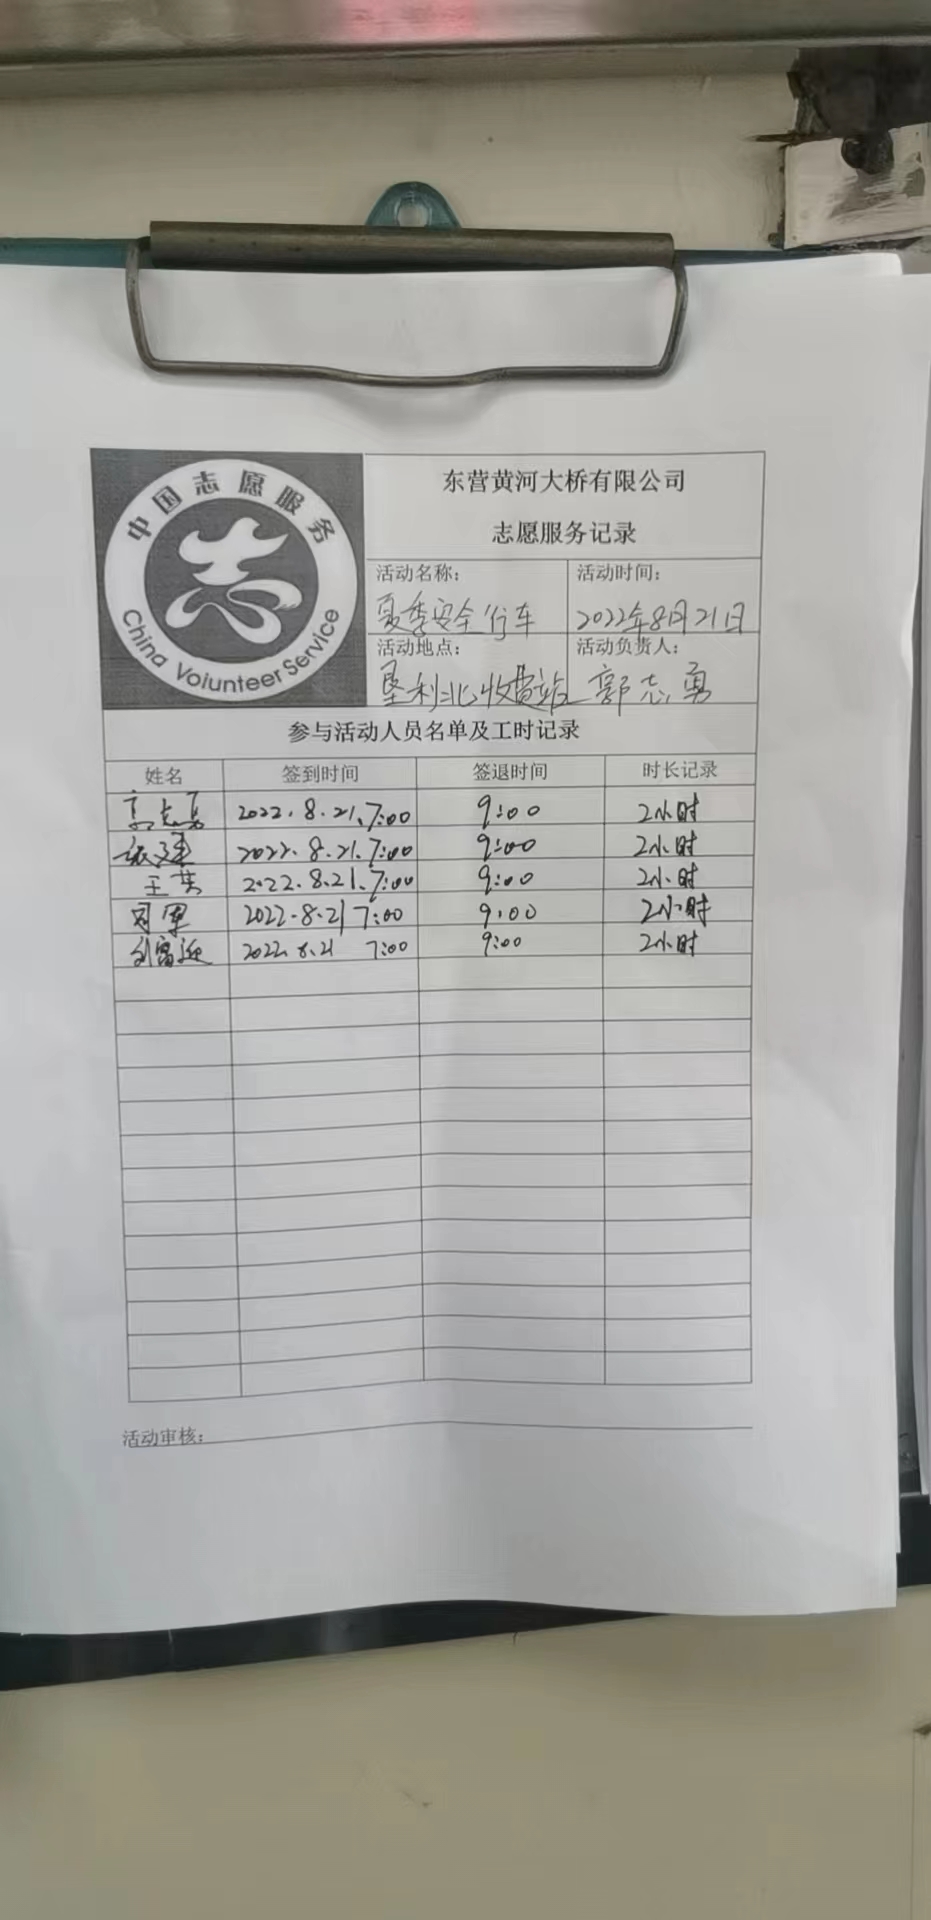 中国志愿服务
China Volunteer Service
东营黄河大桥有限公司
志愿服务记录
活动名称: 活动时间:
夏季安全行车 2022年8月21日
活动地点: 活动负责人:
垦利北收费站 郭志勇
参与活动人员名单及工时记录
姓名 签到时间 签退时间 时长记录
郭志勇 2022.8.21.7:00 9:00 2小时
2022.8.21.7:00 9:00 2小时
王英 2022.8.21.7:00 9:00 2小时
2022.8.21 7:00 9:00 2小时
2022.8.21 7:00 9:00 2小时
活动审核: